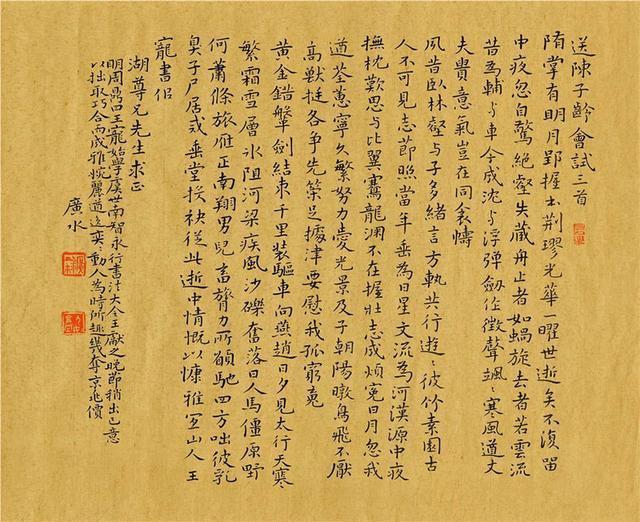 送陳子齡會試三首
隋掌有明月郢握出荆璆光華一曜世逝矣不復留
中夜忽自驚絕壑失藏舟止者如蝸旋去者若雲流
昔為輔與車今成沈與浮彈劒作徵聲颯颯寒風道丈
夫貴意氣豈在同衾幬
夙昔卧林壑与子多緒言方執共行遊遊彼竹素園古
人不可見志節照當年垂為日星文流為河漢源中夜
撫枕歎思与比翼騫龍淵不在握壯志成煩冤日月忽我
道荃蕙寧久繁努力愛光景及子朝陽暾鳥飛不厭
高獸挺各爭先築足據津要慰我孤窮竟
黃金錯鞶劍結束千里裝驅車向燕趙日夕見太行天寒
繁霜雪層冰阻河梁疾風沙礫奮落日人馬僵原野
何蕭條旅雁正南翔男兒畜膂力所願馳四方咄彼乳
臭子尸居戒垂堂揆袂從此逝中情慨以慷雅宜山人王
寵書似
湖尊兄先生求正
明周鼎曰王寵始學虞世南智永行書法大令王獻之晚節稍出己意
以拙取巧合而成雅婉麗遒逸奕奕動人為時所趣幾奪京兆價
廣水